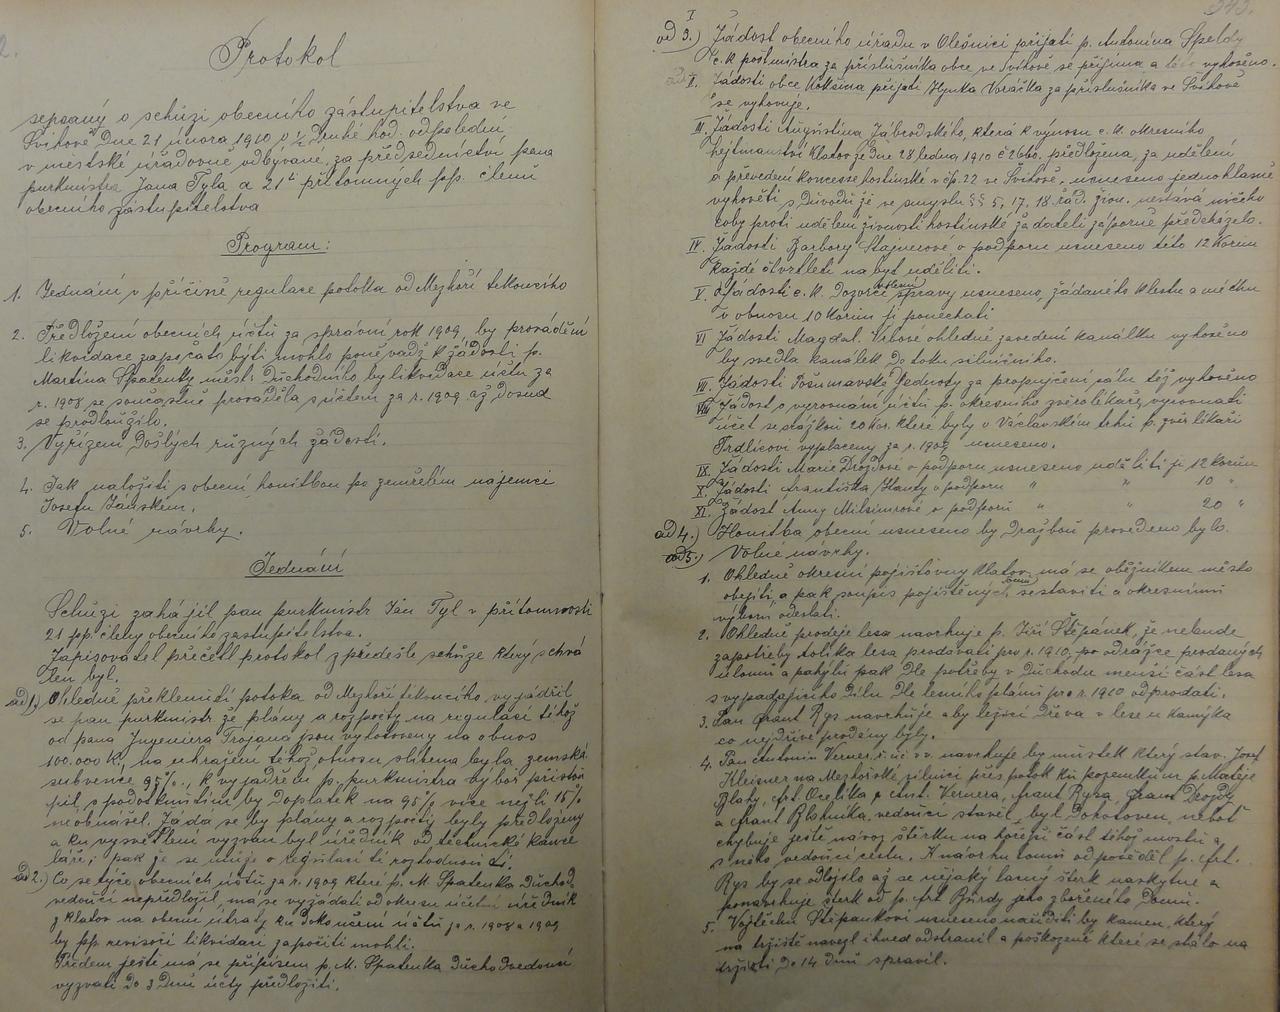 2.
Protokol
sepsaný o schůzi obecního zástupitelstva ve
Švihově Dne 21 února 1910 o ½ Druhé hod. odpolední,
v městské úřadovně odbývané, za předsednictví pana
purkmistra Jana Tyla a 21ti přítomných pp. členů
obecního zástupitelstva
Program:
1. Jednání v příčině regulace potoka od Mezhoří tekoucího
2. Předložení obecních účtů za správní rok 1909, by provádění
likvidace započato býti mohlo poněvadž k žádosti p.
Martina Spatenky měst. Důchodního, by likvidace účtu za
r. 1908 se současně prováděla s účtem za r. 1909 až dosud
se prodloužilo.
3. Vyřízení Došlých různých žádostí.
4. Jak naložiti s obecní honitbou po zemřelém nájemci
Josefu Janském.
5. Volné návrhy.
Jednání
Schůzi zahájil pan purkmistr Jan Tyl v přítomnosti
21 pp. členů obecního zastupitelstva.
Zapisovatel přečetl protokol z předešlé schůze který schvá
len byl.
ad 1.) Ohledně překlenutí potoka od Mezhoří tekoucího, vyjádřil
se pan purkmistr že plány a rozpočty na regulaci téhož
od pana Ingeniera Trojana jsou vyhotoveny na obnos
100.000 K, na uhrazení téhož obnosu slíbena byla zemská
subvence 95%, k vyjádření p. purkmistra výbor přistou
pil, s podotknutím by Doplatek na 95% více nežli 15%
neobnášel. Žádá se by plány a rozpočty byly předloženy
a ku vysvětlení vyzván byl úředník od technické kance
láře; pak je se o regulaci té rozhodnouti.
ad 2.) Co se týče obecních účtů za r. 1909 které p. M. Spatenka Důchod
vedoucí nepředložil, má se vyžádati od okresu účetní úředník
z Klatov na obecní útraty ku Dokončení účtů za r. 1908 a 1909
by pp. revisoři likvidaci započíti mohli.
Předem ještě má se přípisem p. M. Spatenka Důchodvedoucí
vyzvati Do 3 Dnů účty předložiti.
343.
od 3.) I Žádost obecního úřadu v Olešnici přijati p. Antonína Speldy
c. k. poštmistra za příslušníka obce ve Švihově se přijímá a této vyhověno.
II. Žádosti obce Kokšína přijati Hynka Voráčka za příslušníka ve Švihově
se vyhovuje.
III. Žádosti Augustina Zábrodského, která k výnosu c. k. okresního
hejtmanství Klatov ze dne 28 ledna 1910 č 2660. předložena, za udělení
a převedení koncesse hostinské v čp. 22 ve Švihově, usneseno jednohlasně
vyhověti s Důvodu že ve smyslu §§ 5, 17, 18 řád. živn. nestává ničeho
coby proti udělení živnosti hostinské žadateli záporně předcházelo.
IV. Žádosti Barbory Stajnerové o podporu usneseno této 12 Korun
každé čtvrtletí na byt uděliti.
V. Žádosti c. k. Dozorce správy usneseno, žádaného klestu a metku
v obnosu 10 Korun ji ponechati
VI Žádosti Magdal. Vrbové ohledně zavedení kanálku vyhověno
by svedla kanálek Do toku silničního.
VII. Žádosti Pošumavské Jednoty za propůjčení sálu též vyhověno
VIII Žádost o vyrovnání účtu p. okresního zvěrolékaře, vyrovnati
účet se srážkou 20 Kor. které byly o Václavském trhu p. zvěrolékaři
Trdlicovi vyplaceny za r. 1909 usneseno.
IX. Žádosti Marie Drozdové o podporu usneseno uděliti ji 12 korun
X. Žádosti Františka Hanty o podporu " " 10 "
XI. Žádost Anny Milsimrové o podporu " " 20 "
ad 4.) Honitba obecní usneseno by Dražbou provedeno bylo.
ad 5.) Volné návrhy.
1. Ohledně okresní pojišťovny Klatov, má se oběžníkem město
obejíti a pak soupis pojištěných sestaviti a okresnímu
výboru odeslati.
2. Ohledně prodeje lesa navrhuje p. Jiří Štěpánek, že nebude
zapotřeby tolika lesa prodávati pro r. 1910, po odrážce prodaných
úlomů a pahýlů pak Dle potřeby v Důchodu menší část lesa
s vypadajícího Dílu Dle lesního plánu pro r. 1910 odprodati.
3. Pan Frant Rys navrhuje aby ležící Dřeva v lese u Kamýka
co nejdříve prodány byly.
4. Pan Antonín Verner navrhuje by můstek který stav. Josef
Kleisner na Mezhořské silnici přes potok ku pozemkům p. Matěje
Blahy, Frt. Ocelíka p. Ant. Vernera, Frant Rysa, Frant Drozdy
a Frant vedoucí stavěl, byl Dohotoven, neboť
chybuje ještě návoz štěrku na hořejší část téhož mostu a
s něho vedoucí cestu. K návrhu tomu odpověděl p. Frt.
Rys by se odložilo až se nějaký lacný šterk naskytne a
poznamenuje šterk od p. Frt Burdy jeho zbořeného Domu.
5. Vojtěchu Štěpánkovi usneseno naříditi by kámen, který
na tržiště navezl ihned odstranil a poškození které se stalo na
tržišti Do 14 Dnů spravil.